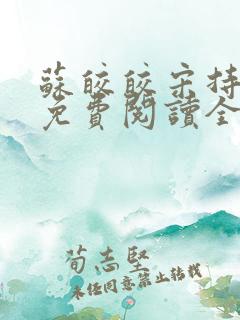 蘇皎皎宋持
免費閱讀全
荀志堅
未經同意禁止轉載